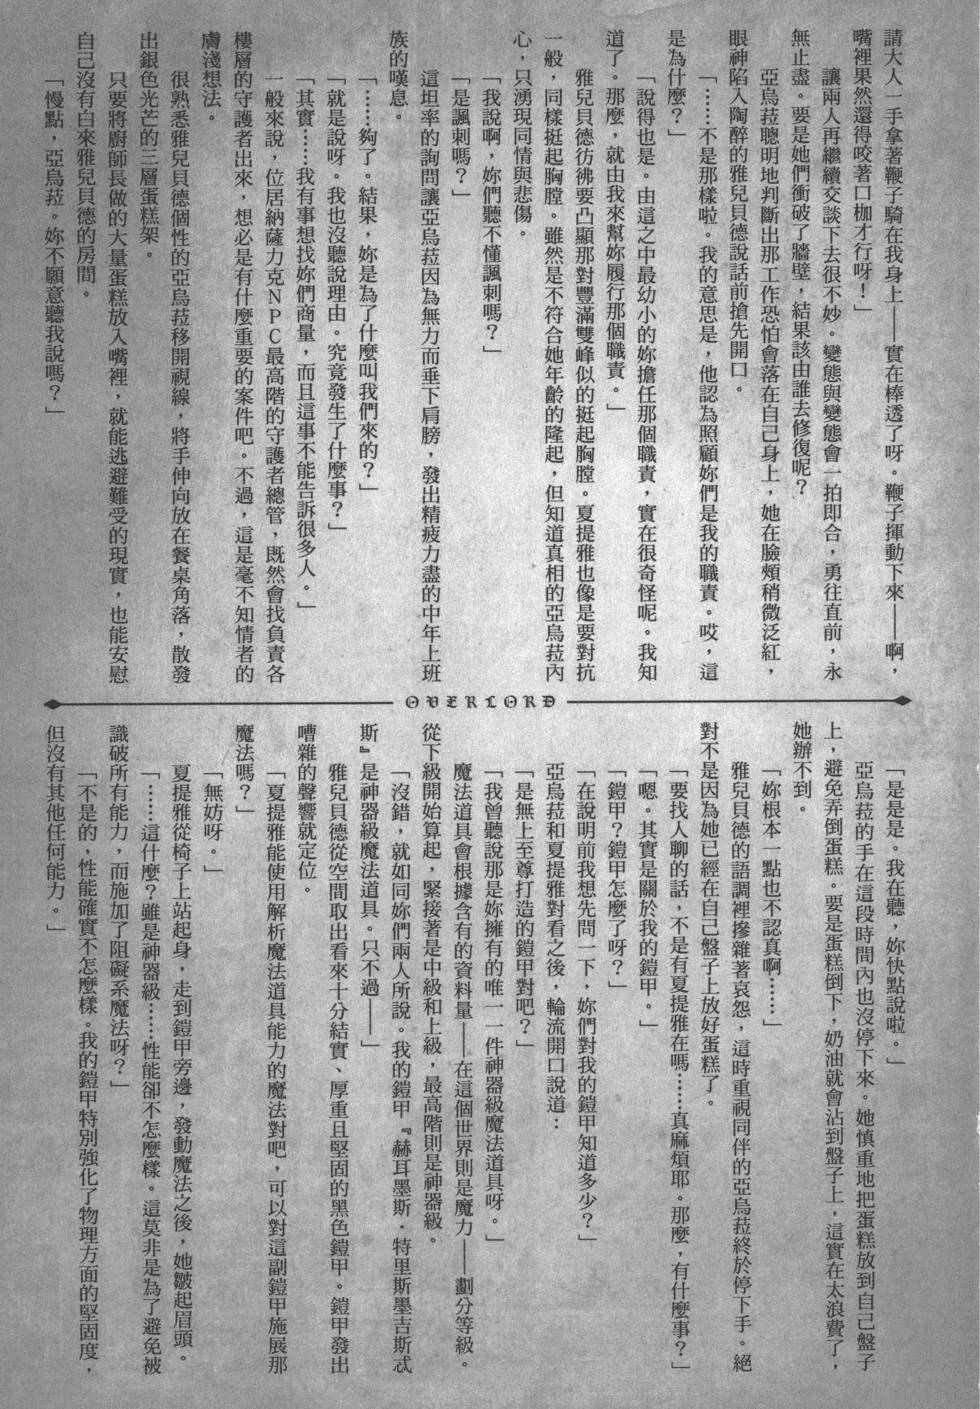 請大人一手拿著鞭子騎在我身上——實在棒透了呀。鞭子揮動下來——啊，
嘴裡果然還得咬著口枷才行呀！」
讓兩人再繼續交談下去很不妙。變態與變態會一拍即合，勇往直前，永
無止盡。要是她們衝破了牆壁，結果該由誰去修復呢？
亞烏菈聰明地判斷出那工作恐怕會落在自己身上，她在臉頰稍微泛紅，
眼神陷入陶醉的雅兒貝德說話前搶先開口。
「……不是那樣啦。我的意思是，他認為照顧妳們是我的職責。哎，這
是為什麼？」
「說得也是。由這之中最幼小的妳擔任那個職責，實在很奇怪呢。我知
道了。那麼，就由我來幫妳履行那個職責。」
雅兒貝德彷彿要凸顯那對豐滿雙峰似的挺起胸膛。夏提雅也像是要對抗
一般，同樣挺起胸膛。雖然是不符合她年齡的隆起，但知道真相的亞烏菈內
心，只湧現同情與悲傷。
「我說啊，妳們聽不懂諷刺嗎？」
「是諷刺嗎？」
這坦率的詢問讓亞烏菈因為無力而垂下肩膀，發出精疲力盡的中年上班
族的嘆息。
「……夠了。結果，妳是為了什麼叫我們來的？」
「就是說呀。我也沒聽說理由。究竟發生了什麼事？」
「其實……我有事想找妳們商量，而且這事不能告訴很多人。」
一般來說，位居納薩力克NPC最高階的守護者總管，既然會找負責各
樓層的守護者出來，想必是有什麼重要的案件吧。不過，這是毫不知情者的
膚淺想法。
很熟悉雅兒貝德個性的亞烏菈移開視線，將手伸向放在餐桌角落，散發
出銀色光芒的三層蛋糕架。
只要將廚師長做的大量蛋糕放入嘴裡，就能逃避難受的現實，也能安慰
自己沒有白來雅兒貝德的房間。
「慢點，亞烏菈。妳不願意聽我說嗎？」
OVERLORD
「是是是。我在聽，妳快點說啦。」
亞烏菈的手在這段時間內也沒停下來。她慎重地把蛋糕放到自己盤子
上，避免弄倒蛋糕。要是蛋糕倒下，奶油就會沾到盤子上，這實在太浪費了，
她辦不到。
「妳根本一點也不認真啊……」
雅兒貝德的語調裡摻雜著哀怨，這時重視同伴的亞烏菈終於停下手。絕
對不是因為她已經在自己盤子上放好蛋糕了。
「要找人聊的話，不是有夏提雅在嗎……真麻煩耶。那麼，有什麼事？」
「嗯。其實是關於我的鎧甲。」
「鎧甲？鎧甲怎麼了呀？」
「在說明前我想先問一下，妳們對我的鎧甲知道多少？」
亞烏菈和夏提雅對看之後，輪流開口說道：
「是無上至尊打造的鎧甲對吧？」
「我曾聽說那是妳擁有的唯一一件神器級魔法道具呀。」
魔法道具會根據含有的資料量——在這個世界則是魔力——劃分等級。
從下級開始算起，緊接著是中級和上級，最高階則是神器級。
「沒錯，就如同妳們兩人所說。我的鎧甲『赫耳墨斯·特里斯墨吉斯忒
斯』是神器級魔法道具。只不過——」
雅兒貝德從空間取出看來十分結實、厚重且堅固的黑色鎧甲。鎧甲發出
嘈雜的聲響就定位。
「夏提雅能使用解析魔法道具能力的魔法對吧，可以對這副鎧甲施展那
魔法嗎？」
「無妨呀。」
夏提雅從椅子上站起身，走到鎧甲旁邊，發動魔法之後，她皺起眉頭。
「……這什麼？雖是神器級……性能卻不怎麼樣。這莫非是為了避免被
識破所有能力，而施加了阻礙系魔法呀？」
「不是的，性能確實不怎麼樣。我的鎧甲特別強化了物理方面的堅固度，
但沒有其他任何能力。」